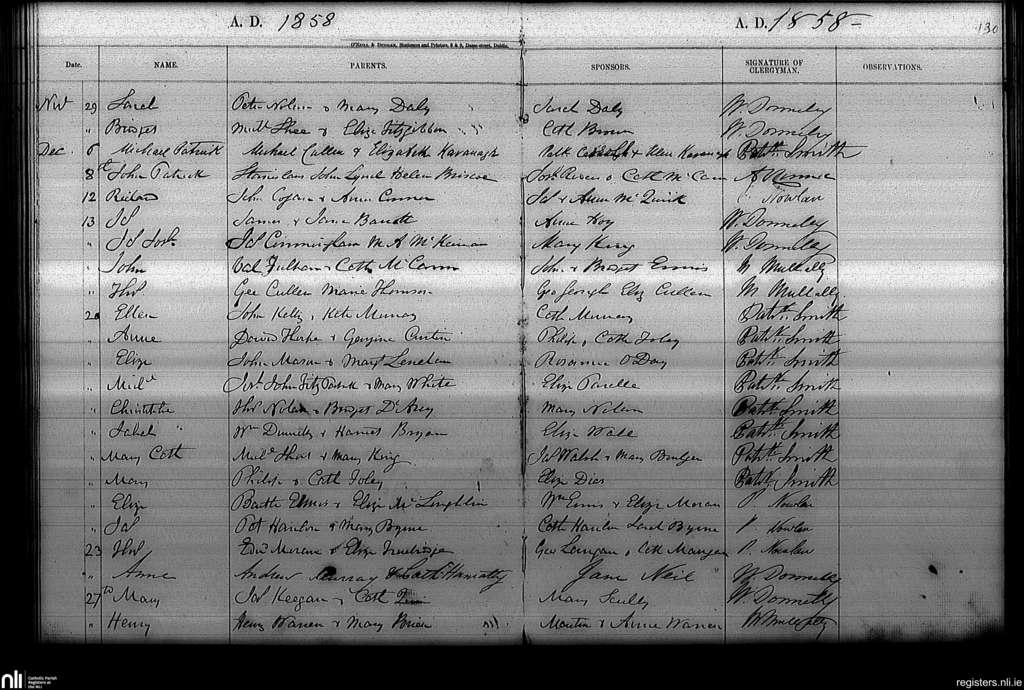 A. D. 1858
A. D. 1858
130
O'Neill & Duggan, Stationers and Printers, Dame-street, Dublin.
Date. NAME. PARENTS. SPONSORS. SIGNATURE OF CLERGYMAN. OBSERVATIONS.
Nov 29 Sarah Peter Nolan & Mary Daly Sarah Daly W. Donnelly
" Bridget Mich Shee & Eliza Fitzgibbon Cath Brown W. Donnelly
Dec 6 Michael Patrick Michael Cullen & Elizabeth Kavanagh & Ellen Kavanagh Patk. Smith
8th John Patrick Stanislaus John Lynch Helen Briscoe & Cath McCann
12 Richard John & Anne Connor Jas & Anne McQuirk P. Nowlan
13 Jas James & Jane Barrett Anne Hoy W. Donnelly
" Jas Josh. Jas Cunningham M. A. McKeirnan Mary King W. Donnelly
" John Val Fulham & Cath McCann John & Bridget Ennis M Mullally
" Thos. Geo Cullen Maria Thomson Geo Eliz Cullen M Mullally
20 Ellen John Kelly & Kate Murray Cath Murray Patk. Smith
" Anne & Georgina Philip & Cath Foley Patk. Smith
" Eliza John Mason & Mary Lenehan Rosanna O'Day Patk. Smith
" Michl John FitzPatrick & Mary White Eliza Patk. Smith
" Thos Nolan & Bridget D'Arcy Mary Nolan Patk. Smith
" Isabel " Wm Donnelly & Harriet Bryan Eliza Wade Patk. Smith
" Mary Cath Michl & Mary King Jas Walsh & Mary Bulger Patk. Smith
" Mary Philip & Cath Foley Eliza Dies Patk. Smith
" Eliza Barth Ennis & Eliza McLoughlin Wm Ennis & Eliza Moran P. Nowlan
" Jas Pat Hanlon & Mary Byrne Cath Hanlon Sarah Byrne P Nowlan
23 Thos Edwd Moran & Eliza Geo Langan & Cath Mangan P. Nowlan
" Anne Andrew Murray & Cath Hanratty Jane Neil " W Donnelly
27th Mary Jas Keegan & Cath Mary Scully W. Donnelly
" Henry Henry Warren & Mary Brien Martin & Anne Warren M Mullally
nli Catholic Parish Registers at the NLI
registers.nli.ie